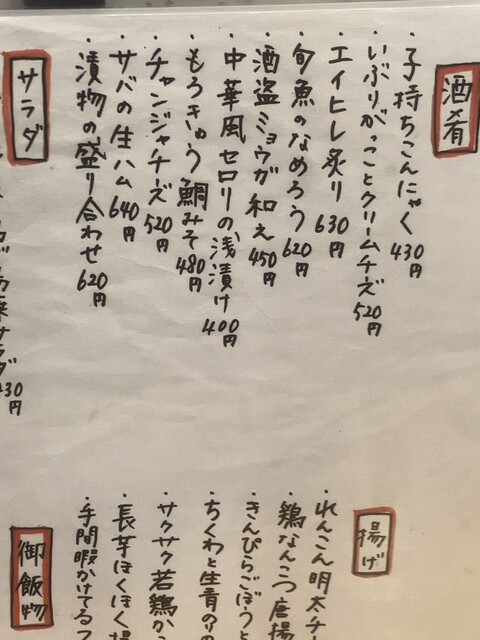 酒肴
・子持ちこんにゃく 430円
・いぶりがっことクリームチーズ 520円
・エイヒレ炙り 630円
・旬魚のなめろう 620円
・酒盗ミョウガ和え 450円
・中華風セロリの浅漬け 400円
・もろきゅう鯛みそ 480円
・チャンジャチーズ 520円
・サバの生ハム 640円
・漬物の盛り合わせ 620円
サラダ
サラダ
円
揚げ
れんこん明太チ
・鶏なんこつ唐揚
・きんぴらごぼうと
・ちくわと生青のりの
・サクサク若鶏かっ
・長芋ほくほく揚
・手間暇かけてるフ
御飯物